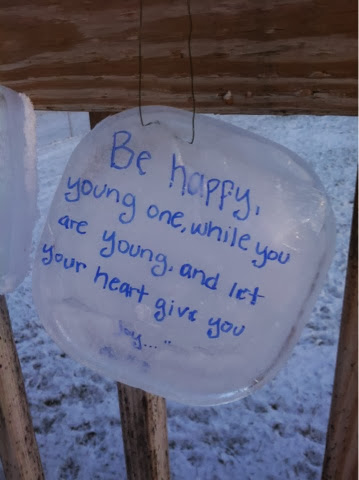 Be happy,
young one, while you
are young, and let
your heart give you
joy... "